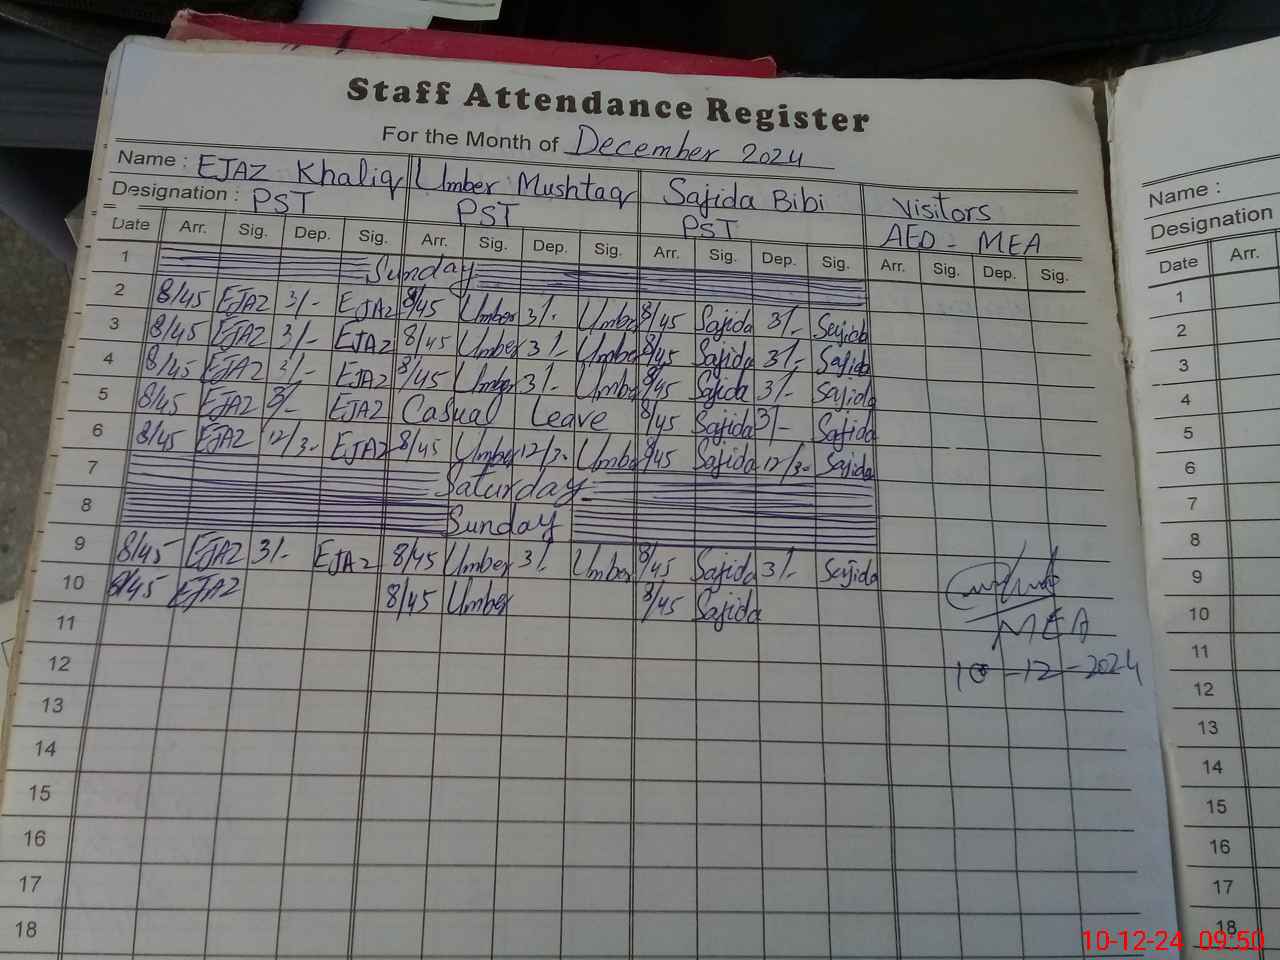 Staff Attendance Register
For the Month of December 2024
Name : EJAZ Khaliq Umber Mushtaq Sajida Bibi Visitors
Designation : PST PST PST AEO - MEA
Date Arr. Sig. Dep. Sig. Arr. Sig. Dep. Sig. Arr. Sig. Dep. Sig. Arr. Sig. Dep. Sig.
1 Sunday
2 8/45 EJAZ 3/- EJAZ 8/45 Umber 3/- Umber 8/45 Sajida 3/- Sajida
3 8/45 EJAZ 3/- EJAZ 8/45 Umber 3/- Umber 8/45 Sajida 3/- Sajida
4 8/45 EJAZ 3/- EJAZ 8/45 Umber 3/- Umber 8/45 Sajida 3/- Sajida
5 8/45 EJAZ 3/- EJAZ Casual Leave 8/45 Sajida 3/- Sajida
6 8/45 EJAZ 12/30 EJAZ 8/45 Umber 12/30 Umber 8/45 Sajida 12/30 Sajida
7 Saturday
8 Sunday
9 8/45 EJAZ 3/- EJAZ 8/45 Umber 3/- Umber 8/45 Sajida 3/- Sajida
10 8/45 EJAZ 8/45 Umber 8/45 Sajida
11 MEA
12 10-12-2024
13
14
15
16
17
18
Name :
Designation
Date Arr.
1
2
3
4
5
6
7
8
9
10
11
12
13
14
15
16
17
18
10-12-24 09:50